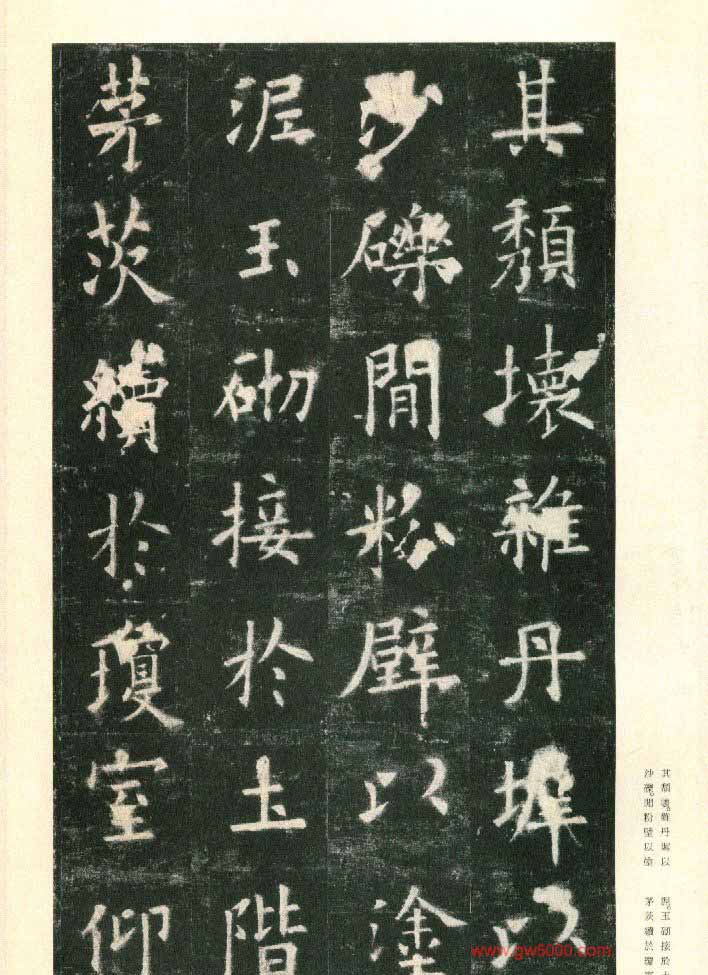 其頹壞雜丹墀以
沙礫間粉壁以塗
泥玉砌接於土階
茅茨續於瓊室仰
其頹壞。雜丹墀以
沙礫。間粉壁以塗
泥。玉砌接於土
茅茨續於瓊室
www.gw5000.com